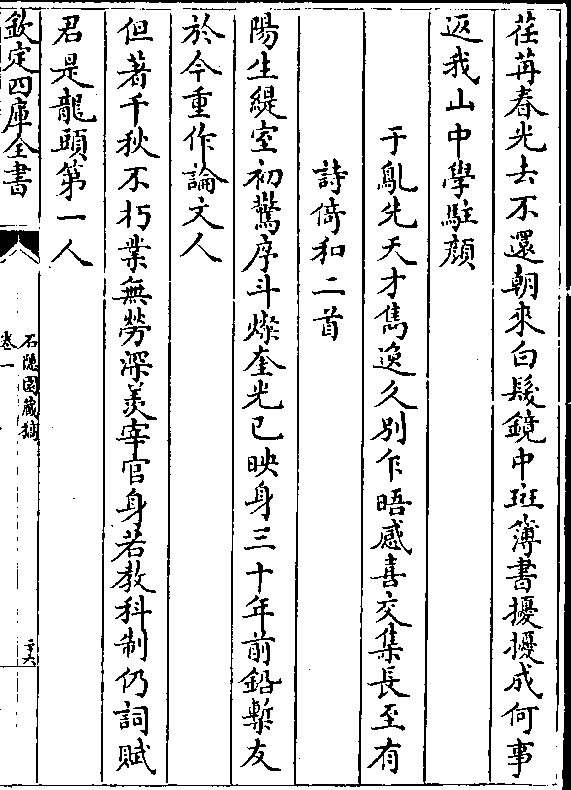 荏苒春光去不還朝來白髮鏡中斑簿書擾擾成何事
返我山中學駐顔
于亂先天才雋逸久別乍晤感喜交集長至有
詩倚和二首
陽生緹室初驚序斗燦奎光已映身三十年前鉛槧友
於今重作論文人
但著千秋不朽業無勞深羡宰官身若教科制仍詞賦
君是龍頭第一人
欽定四庫全書
石隠園藏稿
卷一
二十六